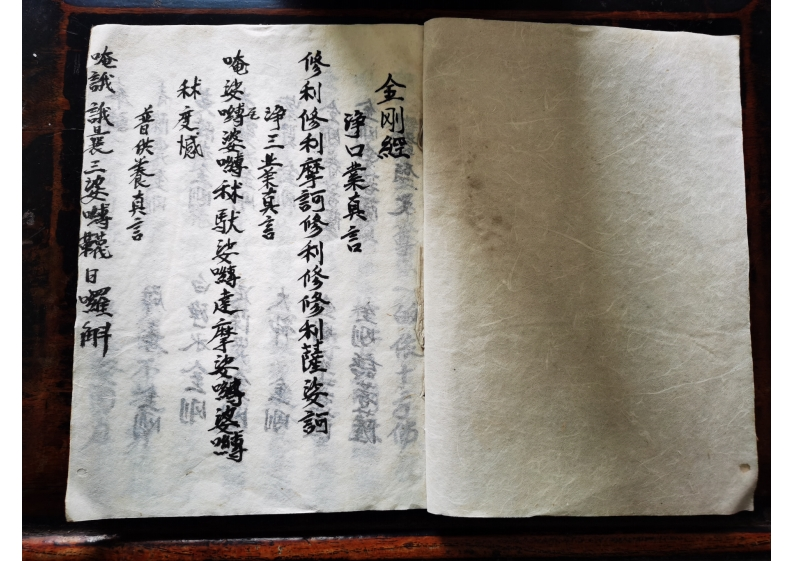 金剛經
淨口業真言
修利修利摩訶修利修修利薩娑訶
淨三業真言
唵娑嚩婆嚩秫馱娑嚩達摩娑嚩婆嚩
秫度憾
普供養真言
唵誐誐曩三婆嚩韈日囉斛